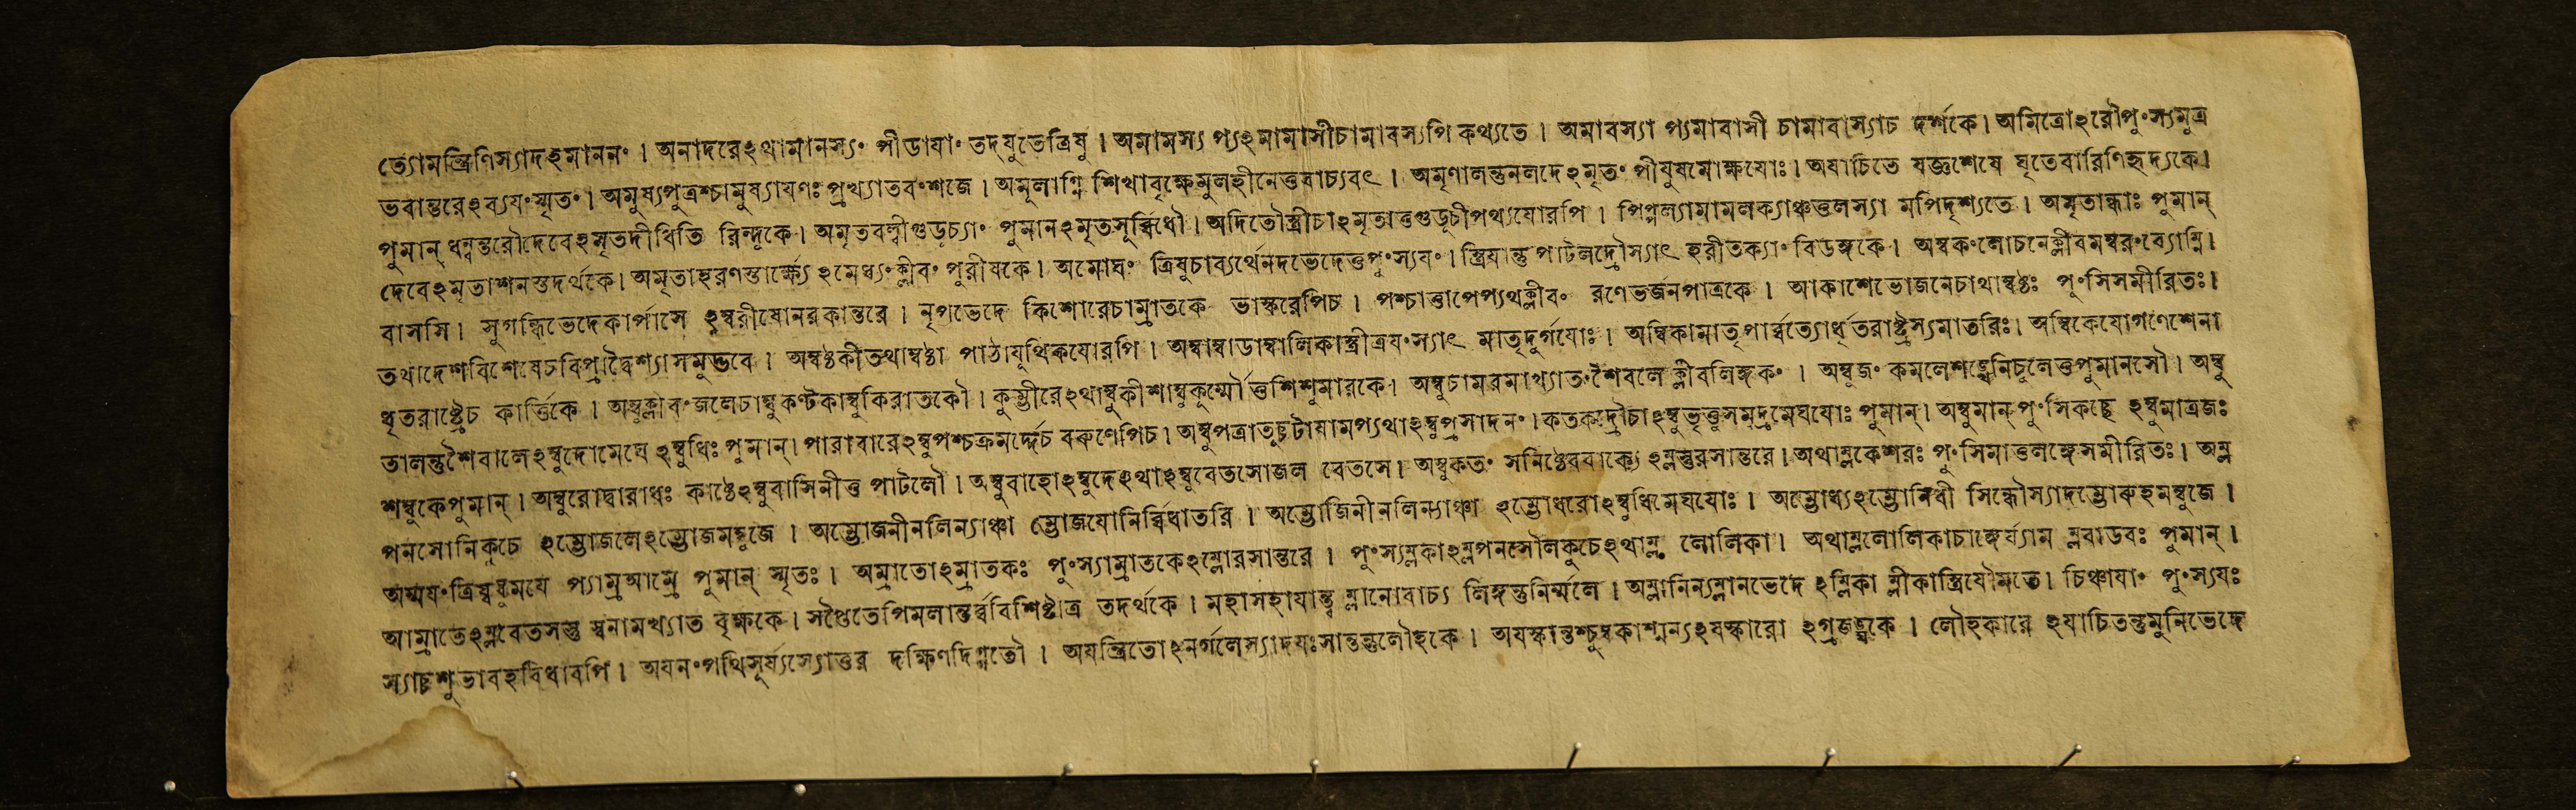 ত্যোমন্ত্রিণিস্যাদঽমাননং । অনাদরেঽথামানস্যং পীডাযাং তদ্যুতেত্রিষু । অমামস্য প্যঽমামাসীচামাবস্যপি কথ্যতে । অমাবস্যা প্যমাবাসী চামাবাস্যাচ দর্শকে । অমিত্রোঽরৌপুংস্যমুত্র
ভবান্তরেঽব্যযংস্মৃতং । অমুষ্যপুত্রশ্চামুষ্যাযণঃ প্রখ্যাতবংশজে । অমূলাগ্নি শিখাবৃক্ষেমুলহীনেত্তবাচ্যবৎ । অমৃণালন্তুনলদেঽমৃতং পীযুষমোক্ষযোঃ । অযাচিতে যজ্ঞশেষে ঘৃতেবারিণিহৃদ্যকে ।
পুমান্ ধন্বন্তরৌদেবেঽমৃতদীধিতি রিন্দুকে । অমৃতবল্লীগুডূচ্যাং পুমানঽমৃতসূর্ব্বিধৌ । অদিতৌস্ত্রীচাঽমৃতাত্তগুডূচীপথ্যযোরপি । পিপ্পল্যামামলক্যাঞ্চত্তলস্যা মপিদৃশ্যতে । অমৃতান্ধাঃ পুমান্
দেবেঽমৃতাশনস্তদর্থকে । অমৃতাহরণস্তার্ক্ষ্যে ঽমেধ্যংক্লীবং পুরীষকে । অমোঘং ত্রিষুচাব্যর্থেনদভেদেত্তপুংস্যযং । স্ত্রিযান্তু পাটলদ্রৌস্যাৎ হরীতক্যাং বিডঙ্গকে । অম্বকংলোচনেক্লীবমম্বরংব্যোম্নি ।
বাসসি । সুগন্ধিভেদেকার্পাসে ঽম্বরীষোনরকান্তরে । নৃপভেদে কিশোরেচাম্রাতকে ভাস্করেপিচ । পশ্চাত্তাপেপ্যথক্লীবং রণেভর্জনপাত্রকে । আকাশেভোজনেচাথাম্বষ্ঠঃ পুংসিসমীরিতঃ ।
তথাদেশবিশেষেচবিপ্রাদ্বৈশ্যাসমুদ্ভবে । অম্বষ্ঠকীতথাম্বষ্ঠা পাঠাযূথিকযোরপি । অম্বাম্বাডাম্বালিকাস্ত্রীত্রযংস্যাৎ মাতৃদুর্গযোঃ । অম্বিকামাতৃপার্ব্বত্যোর্ধৃতরাষ্ট্রস্যমাতরিঃ । অম্বিকেযোগণেশেনা
ধৃতরাষ্ট্রেচ কার্ত্তিকে । অম্বুক্লীবংজলেচাম্বুকণ্টকাম্বুকিরাতকৌ । কুম্ভীরেঽথাম্বুকীশাম্বুকূর্ম্মৌত্তশিশুমারকে । অম্বুচামরমাখ্যাতংশৈবলে ক্লীবলিঙ্গকং । অম্বুজং কমলেশঙ্খেনিচুলেত্তপুমানসৌ । অম্বু
তালন্তুশৈবালেঽম্বুদোমেঘে ঽম্বুধিঃ পুমান্ । পারাবারেঽম্বুপশ্চক্রমর্দ্দেচ বরুণেপিচ । অম্বুপত্রাতুচ্চটাযামপ্যথাঽম্বুপ্রসাদনং । কতকদ্রৌচাঽম্বুভৃত্তুসমুদ্রমেঘযোঃ পুমান্ । অম্বুমান্ পুংসিকচ্ছে ঽম্বুমাত্রজঃ
শম্বুকেপুমান্ । অম্বুরোদ্বারাধঃ কাষ্ঠেঽম্বুবাসিনীত্ত পাটলৌ । অম্বুবাহোঽম্বুদেঽথাঽম্বুবেতসোজল বেতসে । অম্বুকতং সনিষ্ঠেববাক্যে ঽম্লস্তুরসান্তরে । অথাম্লকেশরঃ পুংসিমাত্তলঙ্গেসমীরিতঃ । অম্ল
পনসোনিকুচে ঽম্ভোজলেঽম্ভোজমম্বুজে । অম্ভোজনীনলিন্যাঞ্চা ম্ভোজযোনির্ব্বিধাতরি । অম্ভোজিনীনলিন্যাঞ্চা ঽম্ভোধরোঽম্বুধিমেঘযোঃ । অম্ভোধ্যঽম্ভোনিধী সিন্ধৌস্যাদম্ভোরুহমম্বুজে ।
অম্মযংত্রিষ্বম্বুমযে প্যাম্রআম্রে পুমান্ স্মৃতঃ । অম্রাতোঽম্রাতকঃ পুংস্যাম্রাতকেঽম্লোরসান্তরে । পুংস্যম্লকাঽম্লপনসৌলকুচেঽথাম্ল লোলিকা । অথাম্ললোলিকাচাঙ্গের্য্যাম ম্লবাডবঃ পুমান্ ।
আম্রাতেঽম্লবেতসস্তু স্বনামখ্যাত বৃক্ষকে । সপ্তৈতেপিমলান্তর্ব্ববিশিষ্টাত্র তদর্থকে । মহাসহাযান্ত্ব ম্লানোবাচ্য লিঙ্গন্তুনির্ম্মলে । অম্লানিন্যম্লানভেদে ঽম্লিকা ম্লীকাস্ত্রিযৌমতে । চিঞ্চাযাং পুংস্যযঃ
স্যাচ্চশুভাবহবিধাবপি । অযনংপথিসূর্য্যস্যোত্তর দক্ষিণদিগ্গতৌ । অযন্ত্রিতোঽনর্গলেস্যাদযঃসান্তন্তুলৌহকে । অযস্কান্তশ্চুম্বকাশ্মন্যঽযস্কারো ঽগ্রজঙ্ঘকে । লৌহকারে ঽযাচিতন্তুমুনিভেদে